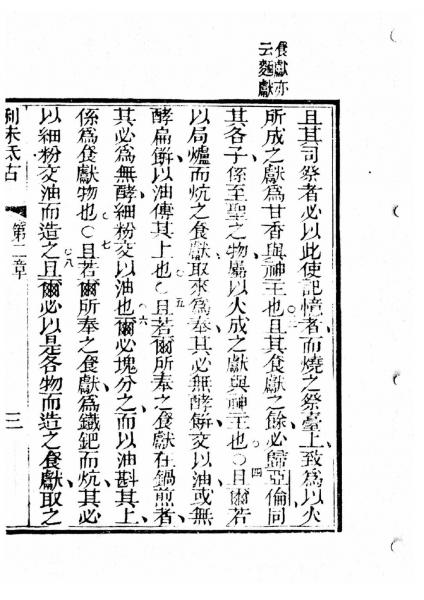 食獻亦
云麵獻
且其司祭者必以此使記憶者、而燒之祭臺上、致為以火
所成之獻為甘香與神主也。三且其食獻之餘必歸亞倫同
其各子、係至聖之物屬以火成之獻與神主也。○四且爾若
以局爐而炕之食獻、取來為奉、其必無酵餅交以油、或無
酵扁餅以油傅其上也。○五且若爾所奉之食獻在鍋煎者、
其必為無酵細粉交以油也。六爾必塊分之、而以油斟其上、
係為食獻物也。○七且若爾所奉之食獻、為鐵鈀而炕、其必
以細粉交油而造之。八且爾必以是各物而造之食獻、取之
利未氏古
第二章
三